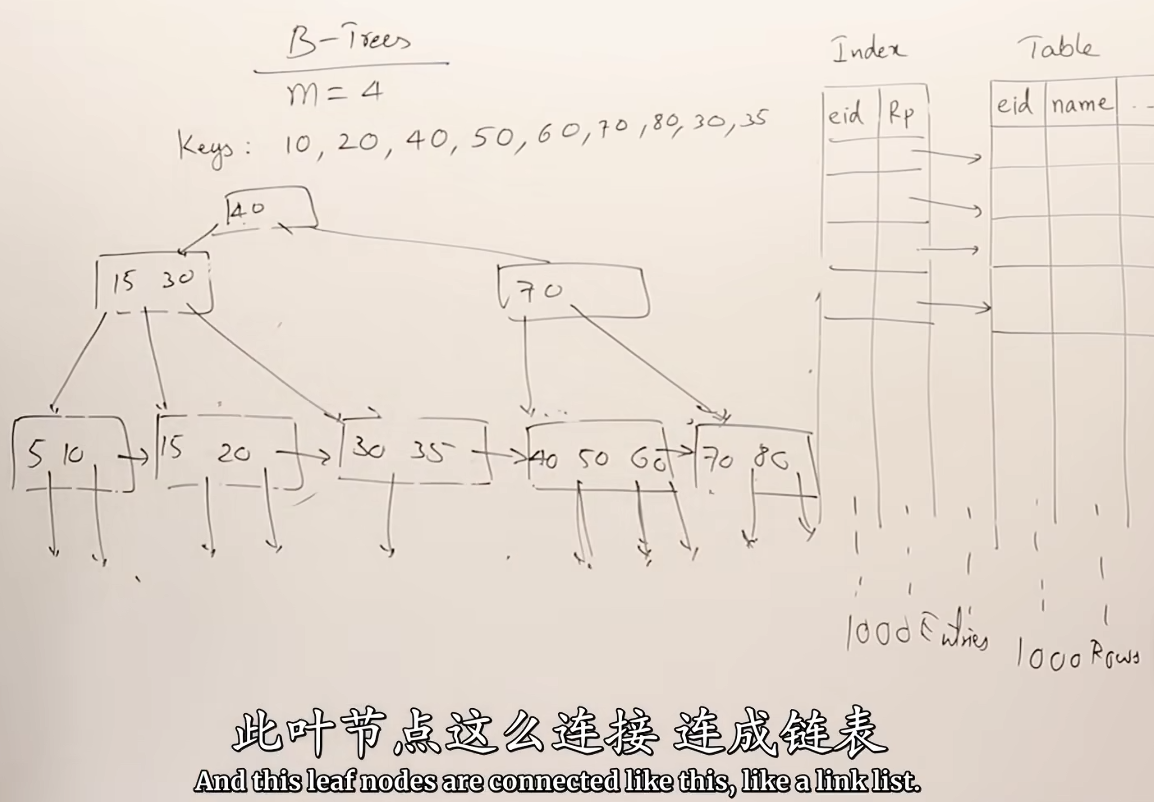 B-Trees
m = 4
Keys: 10, 20, 40, 50, 60, 70, 80, 30, 35
40
15 30
70
5 10
15 20
30 35
40 50 60
70 80
Index
eid Rp
1000 Entries
Table
eid name ..
1000 Rows
此叶节点这么连接 连成链表
And this leaf nodes are connected like this, like a link list.